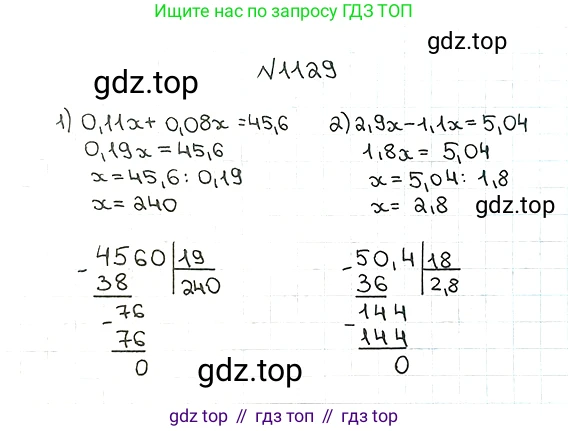 Ищите нас по запросу ГДЗ ТОП
gdz.top
№1129
gdz.top
1) 0,11x + 0,08x = 45,6
0,19x = 45,6
x = 45,6 : 0,19
x = 240
2) 2,9x - 1,1x = 5,04
1,8x = 5,04
x = 5,04 : 1,8
x = 2,8
gdz.top
- 4560 | 19
38 | 240
- 76
76
0
- 50,4 | 18
36 | 2,8
- 144
144
0
gdz.top
gdz.top // гдз топ // gdz.top